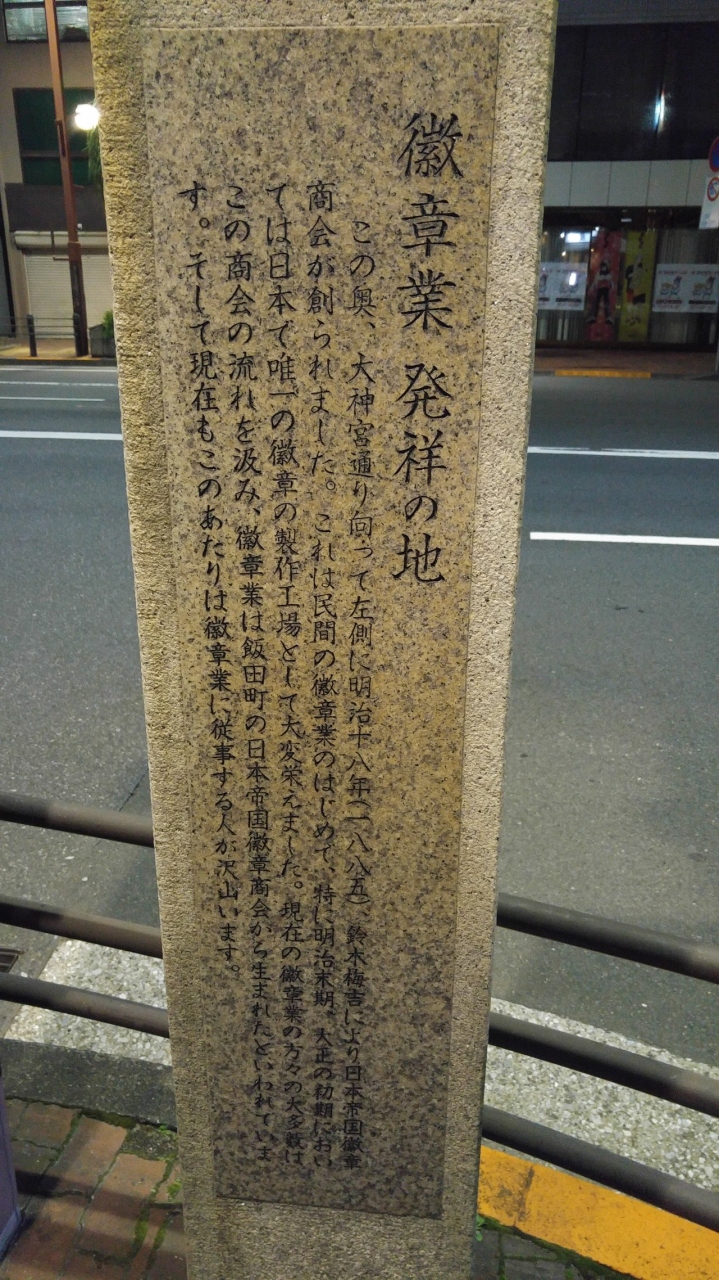 徽章業 発祥の地
この奥、大神宮通り向って左側に明治十八年(一八八五)、鈴木梅吉により日本帝国徽章
商会が創られました。これは民間の徽章業のはじめて、特に明治末期、大正の初期におい
ては日本で唯一の徽章の製作工場として大変栄えました。現在の徽章業の方々の大多数は
この商会の流れを汲み、徽章業は飯田町の日本帝国徽章商会から生まれたといわれていま
す。そして現在もこのあたりは徽章業に従事する人が沢山います。